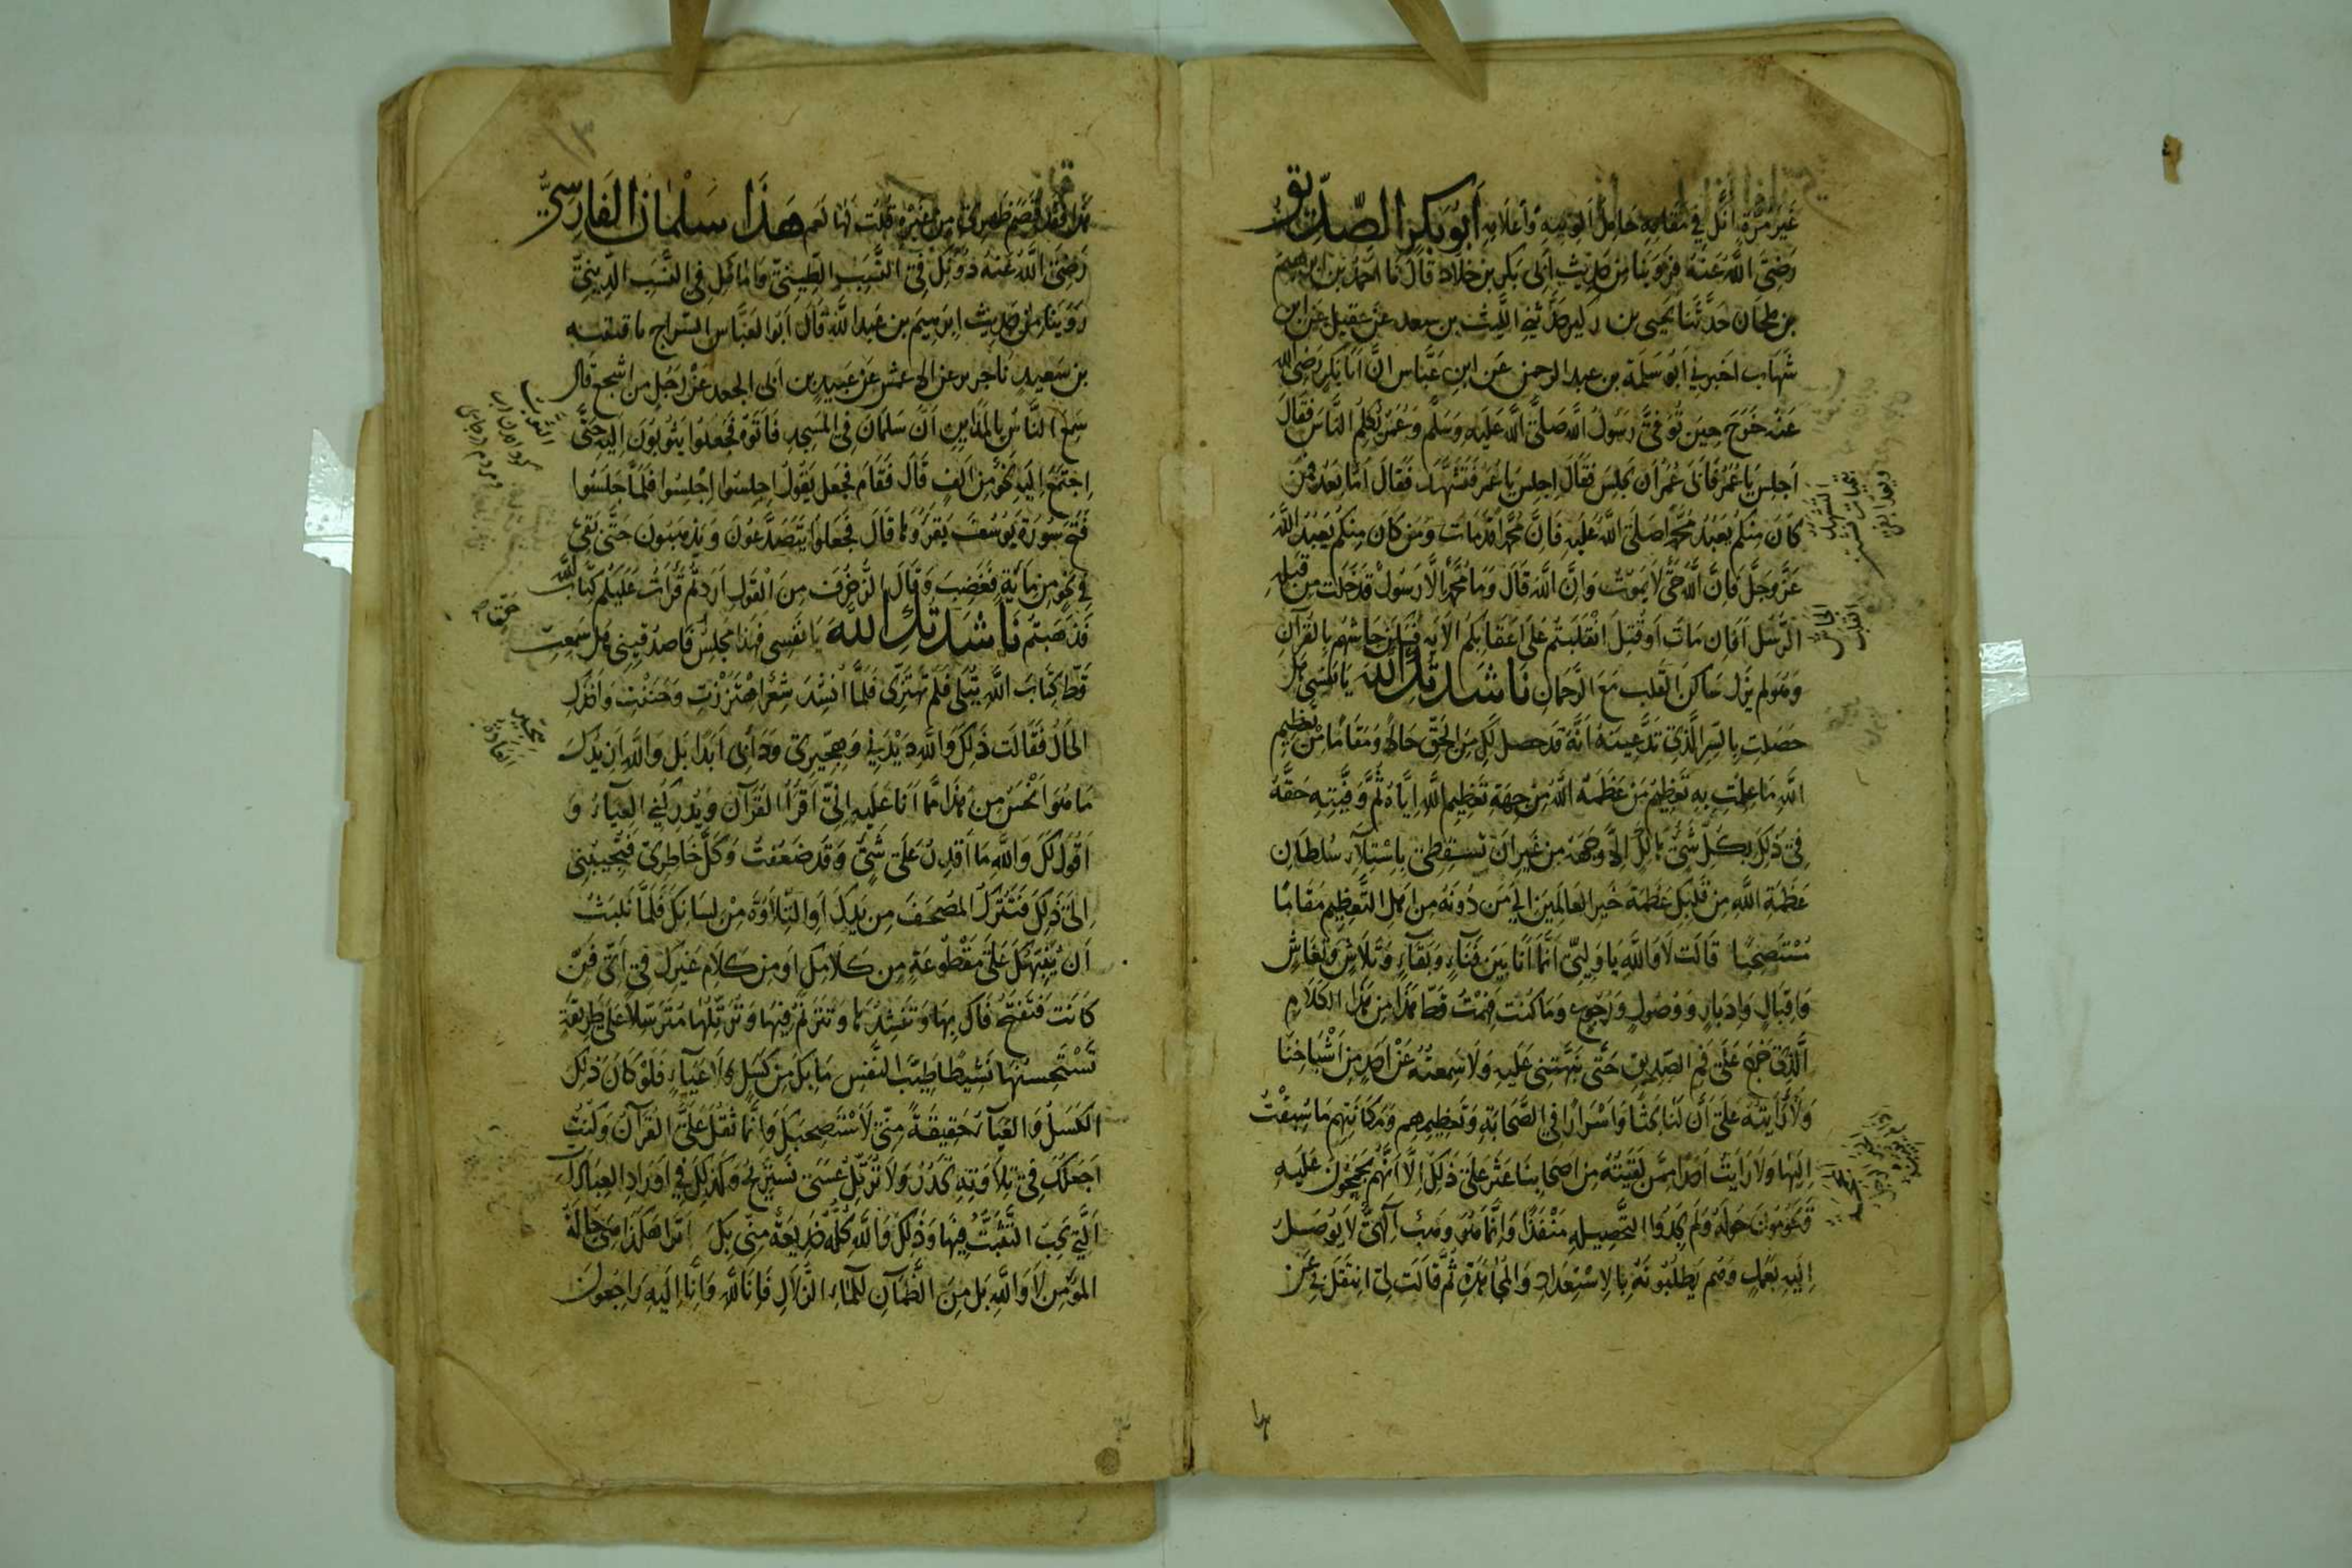 غَيْرَ مَرَّةٍ أنزل فِي مَقَامِهِ حَامِلُ أَلْوِيَتِهِ وَأَعْلَامِهِ أَبُو بَكْرٍ الصِّدِّيقُ
رَضِيَ اللَّهُ عَنْهُ فَرُوِّينَا مِنْ حَدِيثِ أَبِي بَكْرِ بْنِ خَلَّادٍ قَالَ نَا أَحْمَدُ بْنُ إِبْرَاهِيمَ
بن مِلْحَان حَدَّثَنَا يَحْيَى بن بكير حَدَّثَنِي اللَّيْث بن سعد عَنْ عقيل عَنِ ابْنِ
شَهَاب أَخْبَرَنِي أَبُو سَلَمَة بن عبد الرحمن عَنِ ابْنِ عَبَّاس أَنَّ أَبَا بَكْرٍ رَضِيَ اللَّهُ
عَنْهُ خَرَجَ حِينَ تُوُفِّيَ رَسُولُ اللَّهِ صَلَّى اللَّهُ عَلَيْهِ وَسَلَّمَ وَعُمَرُ يُكَلِّمُ النَّاسَ فَقَالَ
اجْلِسْ يَا عُمَرُ فَأَبَى عُمَرُ أَنْ يَجْلِسَ فَقَالَ اجْلِسْ يَا عُمَرُ فَتَشَهَّدَ فَقَالَ أَمَّا بَعْدُ فَمَنْ
كَانَ مِنْكُمْ يَعْبُدُ مُحَمَّدًا صَلَّى اللَّهُ عَلَيْهِ فَإِنَّ مُحَمَّدًا قَدْ مَاتَ وَمَنْ كَانَ مِنْكُمْ يَعْبُدُ اللَّهَ
عَزَّ وَجَلَّ فَإِنَّ اللَّهَ حَيٌّ لَا يَمُوتُ وَإِنَّ اللَّهَ قَالَ وَمَا مُحَمَّدٌ إِلَّا رَسُولٌ قَدْ خَلَتْ مِنْ قَبْلِهِ
الرُّسُلُ أَفَإِنْ مَاتَ أَوْ قُتِلَ انْقَلَبْتُمْ عَلَى أَعْقَابِكُمْ الْآيَة فَسَكَنَ جَاشُهُمْ بِالْقُرْآنِ
وَهُوَ لَمْ يَزَلْ سَاكِنَ الْقَلْبِ مَعَ الرَّحْمَانِ نَاشَدْتُكِ اللَّهَ يَا نَفْسِي هَلْ
حَصَلْتِ بِالسِّرِّ الَّذِي تَدَّعِينَهُ أَنَّهُ قَدْ حَصَلَ لَكِ مِنَ الْحَقِّ حَالًا وَمَقَامًا مِنْ تَعْظِيمِ
اللَّهِ مَا عَلِمْتِ بِهِ تَعْظِيمَ مَنْ عَظَّمَهُ اللَّهُ مِنْ جِهَةِ تَعْظِيمِ اللَّهِ إِيَّاهُ ثُمَّ وَفَّيْتِهِ حَقَّهُ
فِي ذَلِكَ بِكُلِّ شَيْءٍ هَالِكٌ إِلَّا وَجْهَهُ مِنْ غَيْرِ أَنْ تُسْقِطِي بِاسْتِيلَاءِ سُلْطَانِ
عَظَمَةِ اللَّهِ مِنْ قَلْبِكِ عَظَمَةَ خَيْرِ الْعَالَمِينَ إِلَى مَنْ دُونَهُ مِنْ أَهْلِ التَّعْظِيمِ مَقَامًا
مُسْتَصْحَبًا قَالَتْ لَا وَاللَّهِ يَا وَلِيِّي إِنَّمَا أَنَا بَيْنَ فَنَاءٍ وَبَقَاءٍ وَتَلَاشٍ وَانْتِعَاشٍ
وَإِقْبَالٍ وَإِدْبَارٍ وَوُصُولٍ وَرُجُوعٍ وَمَا كُنْتُ فَهِمْتُ قَطُّ هَذَا مِنْ هَذَا الْكَلَامِ
الَّذِي خَرَجَ عَلَى فَمِ الصِّدِّيقِ حَتَّى نَبَّهْتَنِي عَلَيْهِ وَلَا سَمِعْتُهُ عَنْ أَحَدٍ مِنْ أَشْيَاخِنَا
وَلَا رَأَيْتُهُ عَلَى أَنَّ لَنَا بَحْثًا وَأَسْرَارًا فِي الصَّحَابَةِ وَتَعْظِيمِهِمْ وَمَكَانَتِهِمْ مَا سُبِقْتُ
إِلَيْهَا وَلَا رَأَيْتُ أَحَدًا مِمَّنْ لَقِيتُهُ مِنْ أَصْحَابِنَا عَثَرَ عَلَى ذَلِكَ إِلَّا أَنَّهُمْ يَحُومُونَ عَلَيْهِ
وَيَحُومُونَ حَوْلَهُ وَلَمْ يَجِدُوا لِتَحْصِيلِهِ مَنْفَذًا وَإِنَّمَا هُوَ وَهْبٌ إِلَهِيٌّ لَا يُوصَلُ
إِلَيْهِ بِعَمَلٍ وَهُمْ يَطْلُبُونَهُ بِالِاسْتِعْدَادِ وَالْمُجَاهَدَةِ ثُمَّ قَالَتْ لِي انْتَقِلْ بِي عَنْ
هَذَا فَقَدْ قَصَمَ ظَهْرِي مِنْ غَيْرِهِ قُلْتُ لَهَا نَعَمْ هَذَا سَلْمَانُ الْفَارِسِيُّ
رَضِيَ اللَّهُ عَنْهُ دُونَكِ فِي النَّسَبِ الطِّينِيِّ وَإِمَامُكِ فِي النَّسَبِ الدِّينِيِّ
رَوَيْنَا مِنْ حَدِيثِ إِبْرَاهِيمَ بن عَبْدِ اللَّهِ قَالَ أَبُو الْعَبَّاسِ السَّرَّاج نا قتيبة
بن سَعِيدٍ نا جرير عن الأعمش عَنْ عُبَيْدِ بن أبي الجعد عَنْ رَجُلٍ من أشجع قَالَ
سَمِعَ النَّاسُ بِالْمَدَايِنِ أَنَّ سَلْمَانَ فِي الْمَسْجِدِ فَأَتَوْهُ فَجَعَلُوا يَثُوبُونَ إِلَيْهِ حَتَّى
اجْتَمَعَ إِلَيْهِ نَحْوٌ مِنْ أَلْفٍ قَالَ فَقَامَ فَجَعَلَ يَقُولُ اجْلِسُوا اجْلِسُوا فَلَمَّا جَلَسُوا
فَتَحَ سُورَةَ يُوسُفَ يَقْرَؤُهَا قَالَ فَجَعَلُوا يَتَصَدَّعُونَ وَيَذْهَبُونَ حَتَّى بَقِيَ
فِي نَحْوٍ مِنْ مِائَةٍ فَغَضِبَ وَقَالَ الزُّخْرُفَ مِنَ الْقَوْلِ أَرَدْتُمْ قَرَأْتُ عَلَيْكُمْ كِتَابَ اللَّهِ
فَذَهَبْتُمْ نَاشَدْتُكِ اللَّهَ يَا نَفْسِي فَهَذَا مَجْلِسٌ فَاصْدُقِينِي هَلْ سَمِعْتِ
قَطُّ كِتَابَ اللَّهِ يُتْلَى فَلَمْ تَهْتَزِّي فَلَمَّا أُنْشِدَ شِعْرٌ اهْتَزَزْتِ وَحَنَنْتِ وَأَخَذَكِ
الْحَالُ فَقَالَتْ ذَلِكَ وَاللَّهِ دَيْدَنِي وَهِجِّيرِي وَدَأْبِي أَبَدًا بَلْ وَاللَّهِ أَزِيدُكَ
مَا هُوَ أَنْحَسُ مِنْ هَذَا مِمَّا أَنَا عَلَيْهِ إِنِّي أَقْرَأُ الْقُرْآنَ وَيُدْرِكُنِي الْعَيَاءُ وَ
أَقُولُ لَكَ وَاللَّهِ مَا أَقْدِرُ عَلَى شَيْءٍ وَقَدْ ضَعُفْتُ وَكَلَّ خَاطِرِي فَتُجِيبُنِي
إِلَى ذَلِكَ فَتَتْرُكُ الْمُصْحَفَ مِنْ يَدِكَ أَوِ التِّلَاوَةَ مِنْ لِسَانِكَ فَلَمَّا نَلْبَثُ
أَنْ يَقِفَ لَكَ عَلَى مَقْطُوعَةٍ مِنْ كَلَامِكَ أَوْ مِنْ كَلَامِ غَيْرِكَ فِي أَيِّ فَنٍّ
كَانَتْ فَتَفْتَحُ فَاكَ بِهَا وَتُنْشِدُهَا وَتَتَرَنَّمُ فِيهَا وَتُرَتِّلُهَا مُتَرَسِّلًا عَلَى طَرِيقَةٍ
تَسْتَحْسِنُهَا نَشِيطًا طَيِّبَ النَّفْسِ مَا بِكَ مِنْ كَسَلٍ وَلَا عَيَاءٍ فَلَوْ كَانَ ذَلِكَ
الْكَسَلُ وَالْعَيَاءُ حَقِيقَةً مِنِّي لَاسْتَصْحَبَكَ وَإِنَّمَا ثَقُلَ عَلَيَّ الْقُرْآنُ وَكُنْتُ
أَجْعَلُكَ فِي تِلَاوَتِهِ تَحْدُرُ وَلَا تُرَتِّلُ عَسَى نَسْتَرِيحُ وَكَذَلِكَ فِي أَوْرَادِ الْعِبَادَاتِ
الَّتِي يَجِبُ التَّثَبُّتُ فِيهَا وَذَلِكَ وَاللَّهِ كُلُّهُ خَدِيعَةٌ مِنِّي بِكَ أَتَرَى هَكَذَا هِيَ حَالَةُ
الْمُؤْمِنِ لَا وَاللَّهِ بَلْ مِنَ الظَّمْآنِ لِلْمَاءِ الزُّلَالِ فَإِنَّا لِلَّهِ وَإِنَّا إِلَيْهِ رَاجِعُونَ